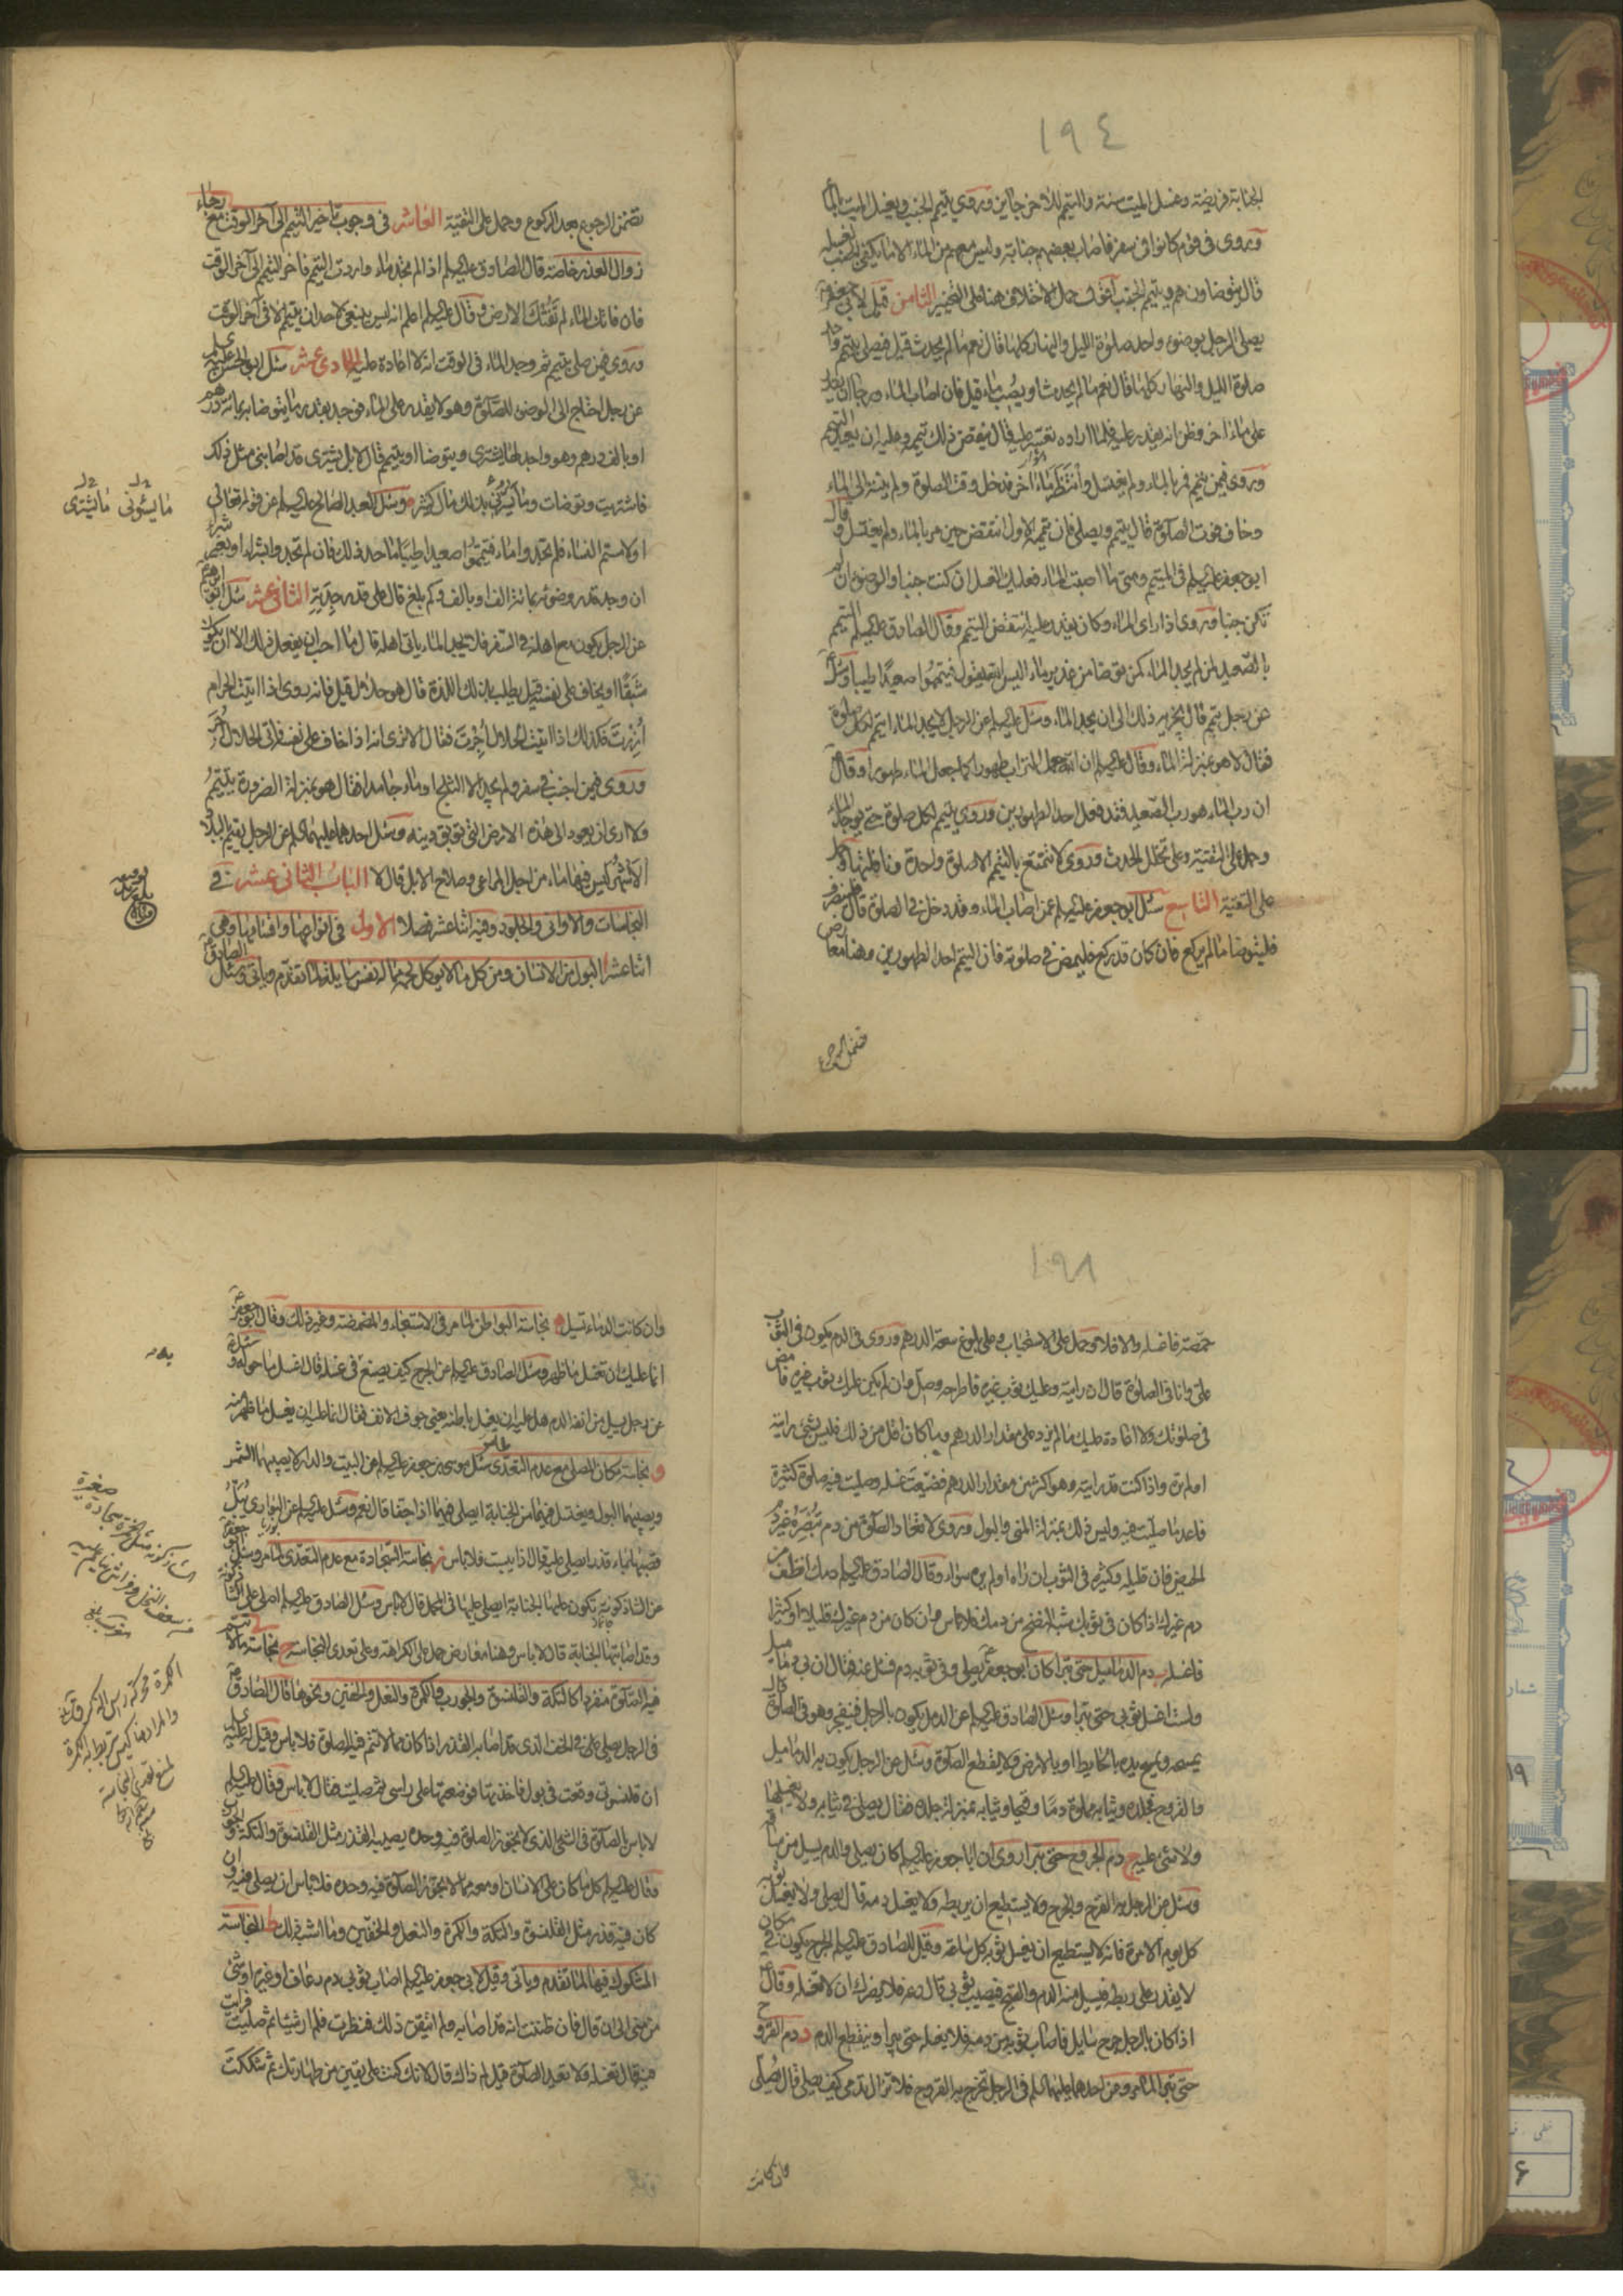 ١٩٤
الجنابة فريضة وغسل الميت سنة والتيمم للآخر جايز وروي يتيمم الجنب ويغسل الميت بالماء
وروى في قوم كانوا في سفر فاصاب بعضهم جنابة وليس معهم من الماء الا ما يكفي الجنب لغسله
قال يتوضاون هم ويتيمم الجنب حمل الاختلاف هنا على التخيير الثامن قيل لابي جعفر
يصلي الرجل بوضوء واحد صلوة الليل والنهار كلها قال نعم ما لم يحدث قيل فيصلي بتيمم واحد
صلوة الليل والنهار كلها قال نعم ما لم يحدث او يصب ماء قيل فان اصاب الماء ورجا ان يقدر
على ماء اخر وظن انه يقدر عليه فلما اراده تعسر عليه قال ينقض ذلك تيممه وعليه ان يعيد التيمم
وروى فيمن تيمم فمر بالماء ولم يغتسل وانتظر ماء آخر فدخل وقت الصلوة ولم ينته الى الماء
وخاف فوت الصلوة قال يتيمم ويصلي فان تيممه الاول انتقض حين مر بالماء ولم يغتسل وقال
ابو جعفر عليه السلم في المتيمم ومتى ما اصبت الماء فعليك الغسل ان كنت جنبا والوضوء ان لم
تكن جنبا وروى اذا راى الماء وكان يقدر عليه انتقض التيمم وقال الصادق عليه السلم التيمم
بالصعيد لمن لم يجد الماء كمن توضا من غدير ماء اليس الله يقول فتيمموا صعيدا طيبا وسئل
عن رجل تيمم قال يجزيه ذلك الى ان يجد الماء وسئل عليه السلم عن الرجل لا يجد الماء ايتيمم لكل صلوة
فقال لا هو بمنزلة الماء وقال عليه السلم ان الله جعل التراب طهورا كما جعل الماء طهورا وقال
ان رب الماء هو رب الصعيد فقد فعل احد الطهورين وروي يتيمم لكل صلوة حتى يوجد الماء
وحمل على التقية وعلى تخلل الحدث وروى لا يتمتع بالتيمم الا صلوة واحدة ونافلتها
على التقية التاسع سئل ابو جعفر عليه السلم عمن اصاب الماء وقد دخل في الصلوة قال فلينصرف
فليتوضا ما لم يركع فان كان قد ركع فليمض في صلوته فان التيمم احد الطهورين وهنا معارض
تضمن الرجوع بعد الركوع وحمل على التقية العاشر في وجوب تاخير التيمم الى آخر الوقت مع رجاء
زوال العذر خاصة قال الصادق عليه السلم اذا لم تجد ماء واردت التيمم فاخر التيمم الى آخر الوقت
فان فاتك الماء لم تفتك الارض وقال عليه السلم اعلم انه ليس ينبغي لاحد ان يتيمم الا في آخر الوقت
وروى فيمن صلى بتيمم ثم وجد الماء في الوقت انه لا اعادة عليه الحادي عشر سئل ابو الحسن عليه السلم
عن رجل احتاج الى الوضوء للصلوة وهو لا يقدر على الماء فوجد بقدر ما يتوضا به بمائة درهم
او بالف درهم وهو واجد لها ايشتري ويتوضا او يتيمم قال لا بل يشترى قد اصابني مثل ذلك
فاشتريت وتوضات وما يسرني بذلك مال كثير وسئل العبد الصالح عليه السلم عن قوله تعالى
او لامستم النساء فلم تجدوا ماء فتيمموا صعيدا طيبا ما حد ذلك فان لم تجدوا بشراء او بغير شراء
ان وجد قدر وضوئه بمائة الف او بالف وكم بلغ قال على قدر جدته الثاني عشر سئل ابو ابراهيم
عن الرجل يكون مع اهله في السفر فلا يجد الماء ياتي اهله قال ما احب ان يفعل ذلك الا ان يكون
شبقا او يخاف على نفسه قيل يطلب بذلك اللذة قال هو حلال قيل فانه روى اذا اتيت الحرام
ازرت فكذلك اذا اتيت الحلال اجرت فقال الا ترى انه اذا خاف على نفسه فاتى الحلال اجر
وروى فيمن اجنب في سفر ولم يجد الا الثلج او ماء جامدا فقال هو بمنزلة الضرورة يتيمم
ولا ارى ان يعود الى هذه الارض التي توبق دينه وسئل احدهما عليهما السلم عن الرجل يقيم بالبلاد
الاشهر ليس فيها ماء من اجل المراعي وصلاح الابل قال لا الباب الثاني عشر في
النجاسات والاواني والجلود وفيه اثنا عشر فصلا الاول في انواعها واقسامها وهي
اثنا عشر ا البول من الانسان ومن كل ما لا يوكل لحمه مما له نفس سايلة لما تقدم وياتي وسئل الصادق
١٩٨
حمصة فاغسله والا فلا وحمل على الاستحباب وعلى بلوغ سعة الدرهم وروى في الدم يكون في الثوب
علي وانا في الصلوة قال ان رايته وعليك ثوب غيره فاطرحه وصل وان لم يكن عليك ثوب غيره فامض
في صلوتك ولا اعادة عليك ما لم يزد على مقدار الدرهم وما كان اقل من ذلك فليس بشيء رايته
او لم تره واذا كنت قد رايته وهو اكثر من مقدار الدرهم فضيعت غسله وصليت فيه صلوة كثيرة
فاعد ما صليت فيه وليس ذلك بمنزلة المني والبول وروى لا تعاد الصلوة من دم تبصره غير دم
الحيض فان قليله وكثيره في الثوب ان راه او لم يره سواء وقال الصادق عليه السلم دمك انظف من
دم غيرك اذا كان في ثوبك شبه النضح من دمك فلا باس وان كان من دم غيرك قليلا او كثيرا
فاغسله ب دم الدماميل حتى تبرا كان ابو جعفر يصلي وفي ثوبه دم فسئل عنه فقال ان بي دماميل
ولست اغسل ثوبي حتى تبرا وسئل الصادق عليه السلم عن الدمل يكون بالرجل فينفجر وهو في الصلوة قال
يمسحه ويمسح يده بالحايط او بالارض ولا يقطع الصلوة وسئل عن الرجل يكون به الدماميل
والقروح فجلده وثيابه مملوة دما وقيحا وثيابه بمنزلة جلده فقال يصلي في ثيابه ولا يغسلها
ولا شيء عليه ج دم الجروح حتى تبرا روى ان ابا جعفر عليه السلم كان يصلي والدم يسيل من ساقه
وسئل عن الرجل به القرح والجرح ولا يستطيع ان يربطه ولا يغسل دمه قال يصلي ولا يغسل ثوبه
كل يوم الا مرة فانه لا يستطيع ان يغسل ثوبه كل ساعة وقيل للصادق عليه السلم الجرح يكون في مكان
لا يقدر على ربطه فيسيل منه الدم والقيح فيصيب ثوبي قال دعه فلا يضرك ان لا تغسله وقال
اذا كان بالرجل جرح سايل فاصاب ثوبه من دمه فلا يغسله حتى يبرا وينقطع الدم د دم القروح
حتى تبرا لما مر وعن احدهما عليهما السلم في الرجل تخرج به القروح فلا تزال تدمى كيف يصلي قال يصلي
فان كانت
وان كانت الدماء تسيل ه نجاسة البواطن لما مر في الاستنجاء والمضمضة وغير ذلك وقال ابو جعفر
انما عليك ان تغسل ما ظهر وسئل الصادق عليه السلم عن الجرح كيف يصنع في غسله قال اغسل ما حوله وسئل
عن رجل يسيل من انفه الدم هل عليه ان يغسل باطنه يعني جوف الانف فقال انما عليه ان يغسل ما ظهر منه
و نجاسة مكان المصلي مع عدم التعدي سئل موسى بن جعفر عليه السلم عن البيت والدار لا يصيبهما الشمس
ويصيبهما البول ويغتسل فيهما من الجنابة ايصلى فيهما اذا جفا قال نعم وسئل عليه السلم عن البواري يبل
قصبها بماء قذر ايصلى عليه قال اذا يبست فلا باس ز نجاسة السجادة مع عدم التعدي لما مر وسئل ابو جعفر
عن الشاذكونة تكون عليها الجنابة ايصلى عليها في المحمل قال لا باس وسئل الصادق عليه السلم اصلي على الشاذكونة
وقد اصابتها الجنابة قال لا باس وهنا معارض حمل على الكراهة وعلى تعدي النجاسة ح نجاسة ما لا تتم
فيه الصلوة منفردا كالتكة والقلنسوة والجورب والكمرة والنعل والخفين ونحوها قال الصادق
في الرجل يصلي في الخف الذي قد اصابه القذر اذا كان مما لا تتم فيه الصلوة فلا باس وقيل له عليه السلم
ان قلنسوتي وقعت في بول فاخذتها فوضعتها على راسي ثم صليت فقال لا باس وقال عليه السلم
لا باس بالصلوة في الشيء الذي لا تجوز الصلوة فيه وحده يصيبه القذر مثل القلنسوة والتكة والجورب
وقال عليه السلم كل ما كان على الانسان او معه مما لا تجوز الصلوة فيه وحده فلا باس ان يصلي فيه وان
كان فيه قذر مثل القلنسوة والتكة والكمرة والنعل والخفين وما اشبه ذلك ط النجاسة
المشكوك فيها لما تقدم وياتي وقيل لابي جعفر عليه السلم اصاب ثوبي دم رعاف او غيره او شيء
من مني الى ان قال فان ظننت انه قد اصابه ولم اتيقن ذلك فنظرت فلم ار شيئا ثم صليت فرايت
فيه قال تغسله ولا تعيد الصلوة قيل لم ذاك قال لانك كنت على يقين من طهارتك ثم شككت